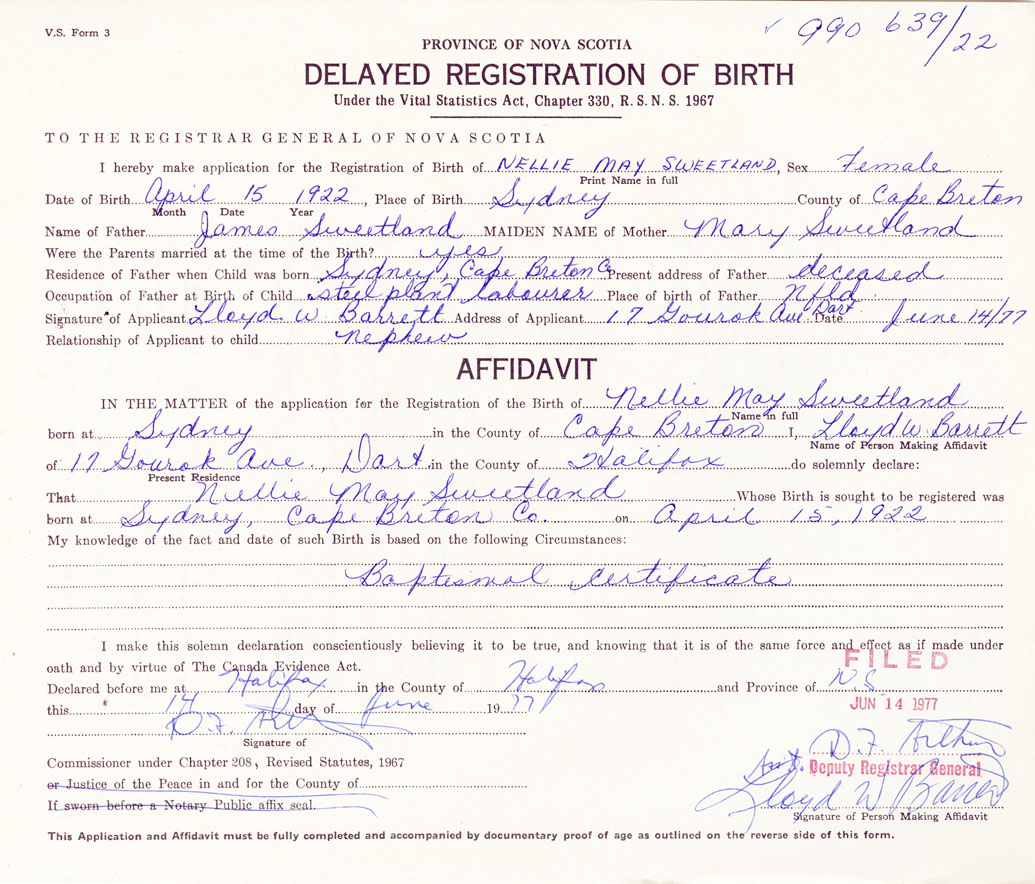 V.S. Form 3
✓ 990 639/22
PROVINCE OF NOVA SCOTIA
DELAYED REGISTRATION OF BIRTH
Under the Vital Statistics Act, Chapter 330, R.S.N.S. 1967
TO THE REGISTRAR GENERAL OF NOVA SCOTIA
I hereby make application for the Registration of Birth of NELLIE MAY SWEETLAND, Sex Female
Print Name in full
Date of Birth April 15 1922, Place of Birth Sydney County of Cape Breton
Month Date Year
Name of Father James Sweetland MAIDEN NAME of Mother Mary Sweetland
Were the Parents married at the time of the Birth? yes
Residence of Father when Child was born Sydney, Cape Breton Co Present address of Father deceased
Occupation of Father at Birth of Child steel plant labourer Place of birth of Father Nfld
Signature of Applicant Lloyd W Barrett Address of Applicant 17 Gourok Ave Dart Date June 14/77
Relationship of Applicant to child Nephew
AFFIDAVIT
IN THE MATTER of the application for the Registration of the Birth of Nellie May Sweetland
Name in full
born at Sydney in the County of Cape Breton I, Lloyd W. Barrett
Name of Person Making Affidavit
of 17 Gourok Ave., Dart. in the County of Halifax do solemnly declare:
Present Residence
That Nellie May Sweetland Whose Birth is sought to be registered was
born at Sydney, Cape Breton Co. on April 15, 1922
My knowledge of the fact and date of such Birth is based on the following Circumstances:
Baptesmal Certificate
I make this solemn declaration conscientiously believing it to be true, and knowing that it is of the same force and effect as if made under
oath and by virtue of The Canada Evidence Act.
FILED
Declared before me at Halifax in the County of Halifax and Province of N.S.
JUN 14 1977
this 14 day of June 1977
D.F. Arthur
Signature of
D.F. Arthur
Commissioner under Chapter 208, Revised Statutes, 1967
Asst. Deputy Registrar General
or Justice of the Peace in and for the County of
Lloyd W Barrett
If sworn before a Notary Public affix seal.
Signature of Person Making Affidavit
This Application and Affidavit must be fully completed and accompanied by documentary proof of age as outlined on the reverse side of this form.